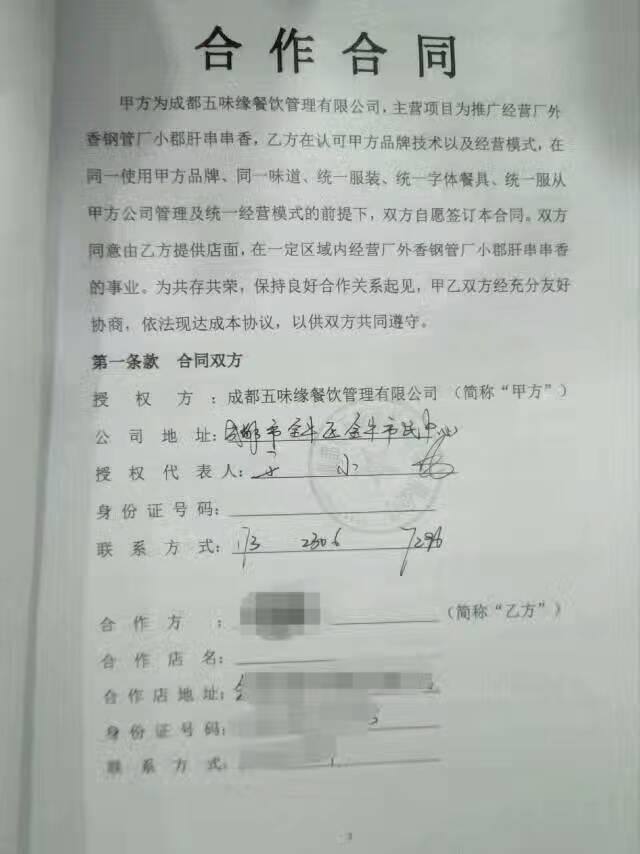 合作合同
甲方为成都五味缘餐饮管理有限公司，主营项目为推广经营厂外
香钢管厂小郡肝串串香，乙方在认可甲方品牌技术以及经营模式，在
同一使用甲方品牌、同一味道、统一服装、统一字体餐具、统一服从
甲方公司管理及统一经营模式的前提下，双方自愿签订本合同。双方
同意由乙方提供店面，在一定区域内经营厂外香钢管厂小郡肝串串香
的事业。为共存共荣，保持良好合作关系起见，甲乙双方经充分友好
协商，依法现达成本协议，以供双方共同遵守。
第一条款 合同双方
授权方：成都五味缘餐饮管理有限公司（简称“甲方”）
公司地址：成都市金牛区金牛市民中心
授权代表人：小
身份证号码：
联系方式：173 2306 7296
合作方：（简称“乙方”）
合作店名：
合作店地址：
身份证号码：
联系方式：
3